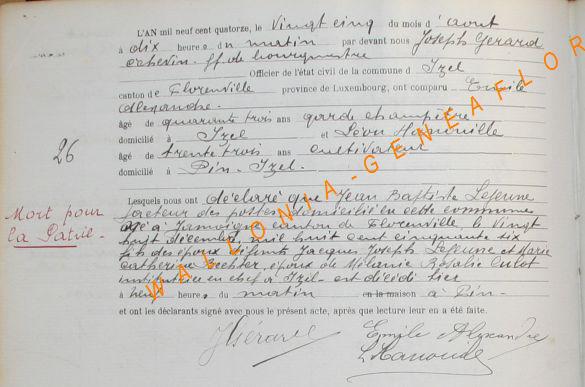 L'AN mil neuf cent quatorze, le Vingt cinq du mois d'août
à dix heures du matin par devant nous Joseph Gerard
échevin ff de bourgmestre
Officier de l'état civil de la commune d'Izel
canton de Florenville province de Luxembourg, ont comparu Emile
Alexandre.
âgé de quarante trois ans garde champêtre
domicilié à Izel et Léon
âgé de trente trois ans cultivateur
domicilié à Pin-Izel.
Lesquels nous ont déclaré que Jean Baptiste Lejeune
facteur des postes domicilié en cette commune
né à Jamoigne canton de Florenville, le Vingt
huit décembre mil huit cent cinquante six
fils des époux défunts Jacques Joseph Lejeune et Marie
Catherine époux de Mélanie Rosalie Culot
institutrice en chef à Izel - est décédé hier
à heures du matin en la maison à Pin-
et ont les déclarants signé avec nous le présent acte, après que lecture leur en a été faite.
26
Mort pour
la Patrie.
JGérard
Emile Alexandre
WALLONIA-GENEAFLOR